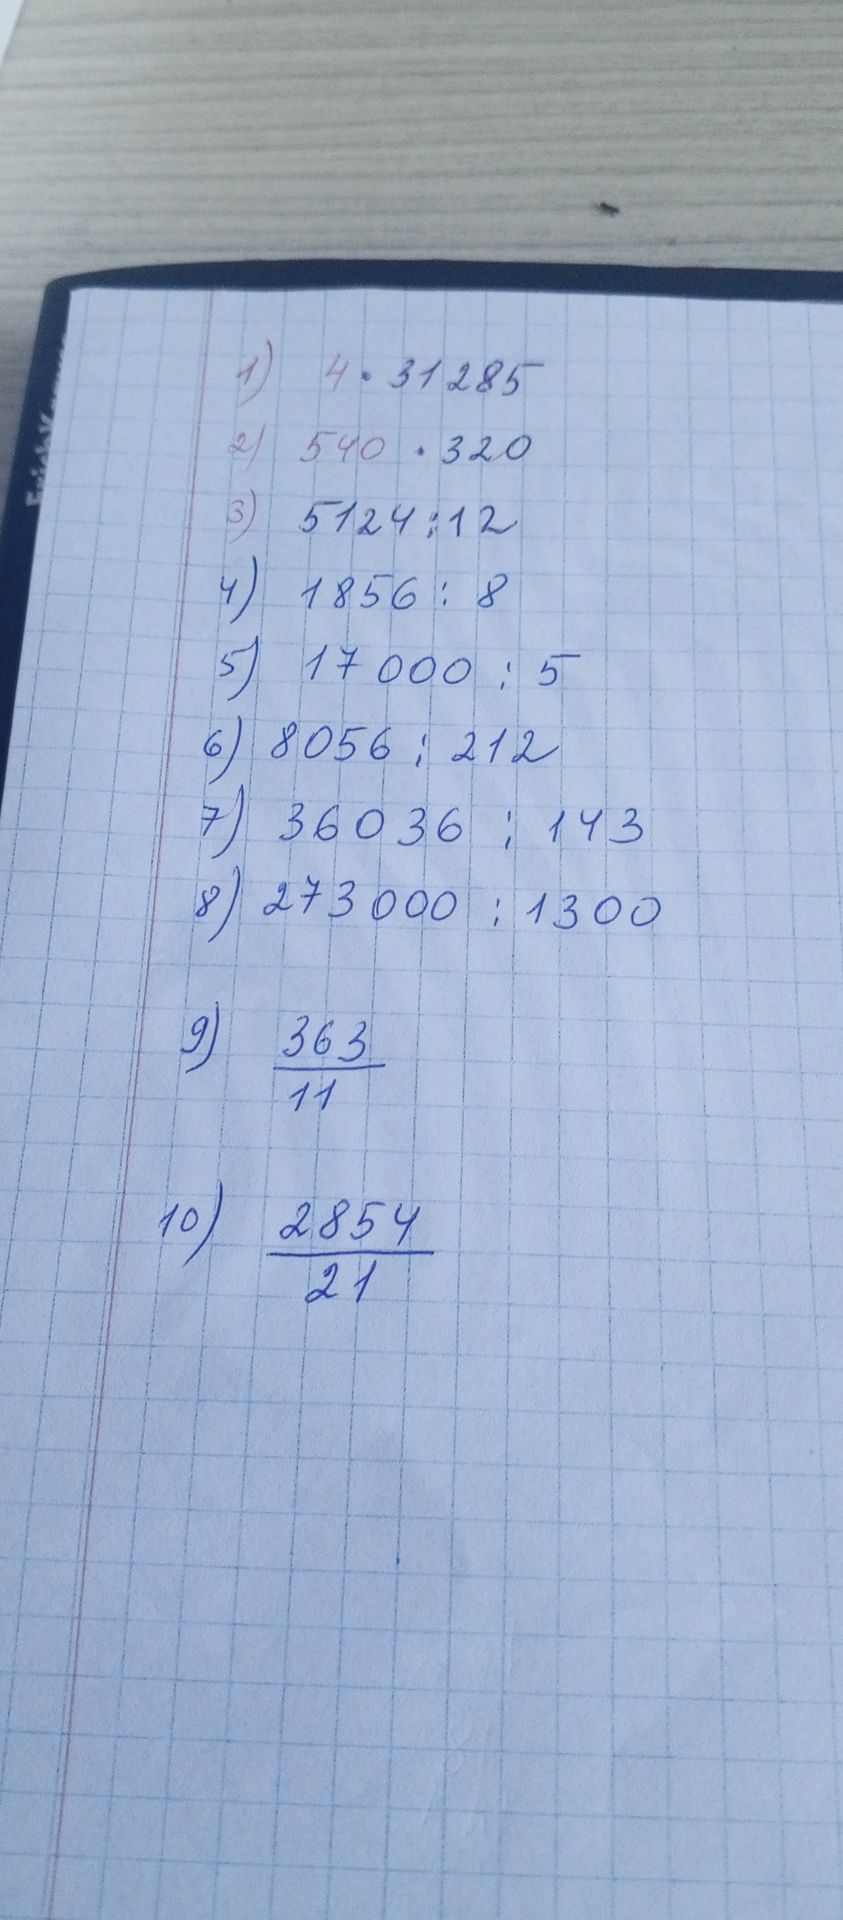 1) 4 · 31285
2) 540 · 320
3) 5124 : 12
4) 1856 : 8
5) 17000 : 5
6) 8056 : 212
7) 36036 : 143
8) 273000 : 1300
9) 363
11
10) 2854
21